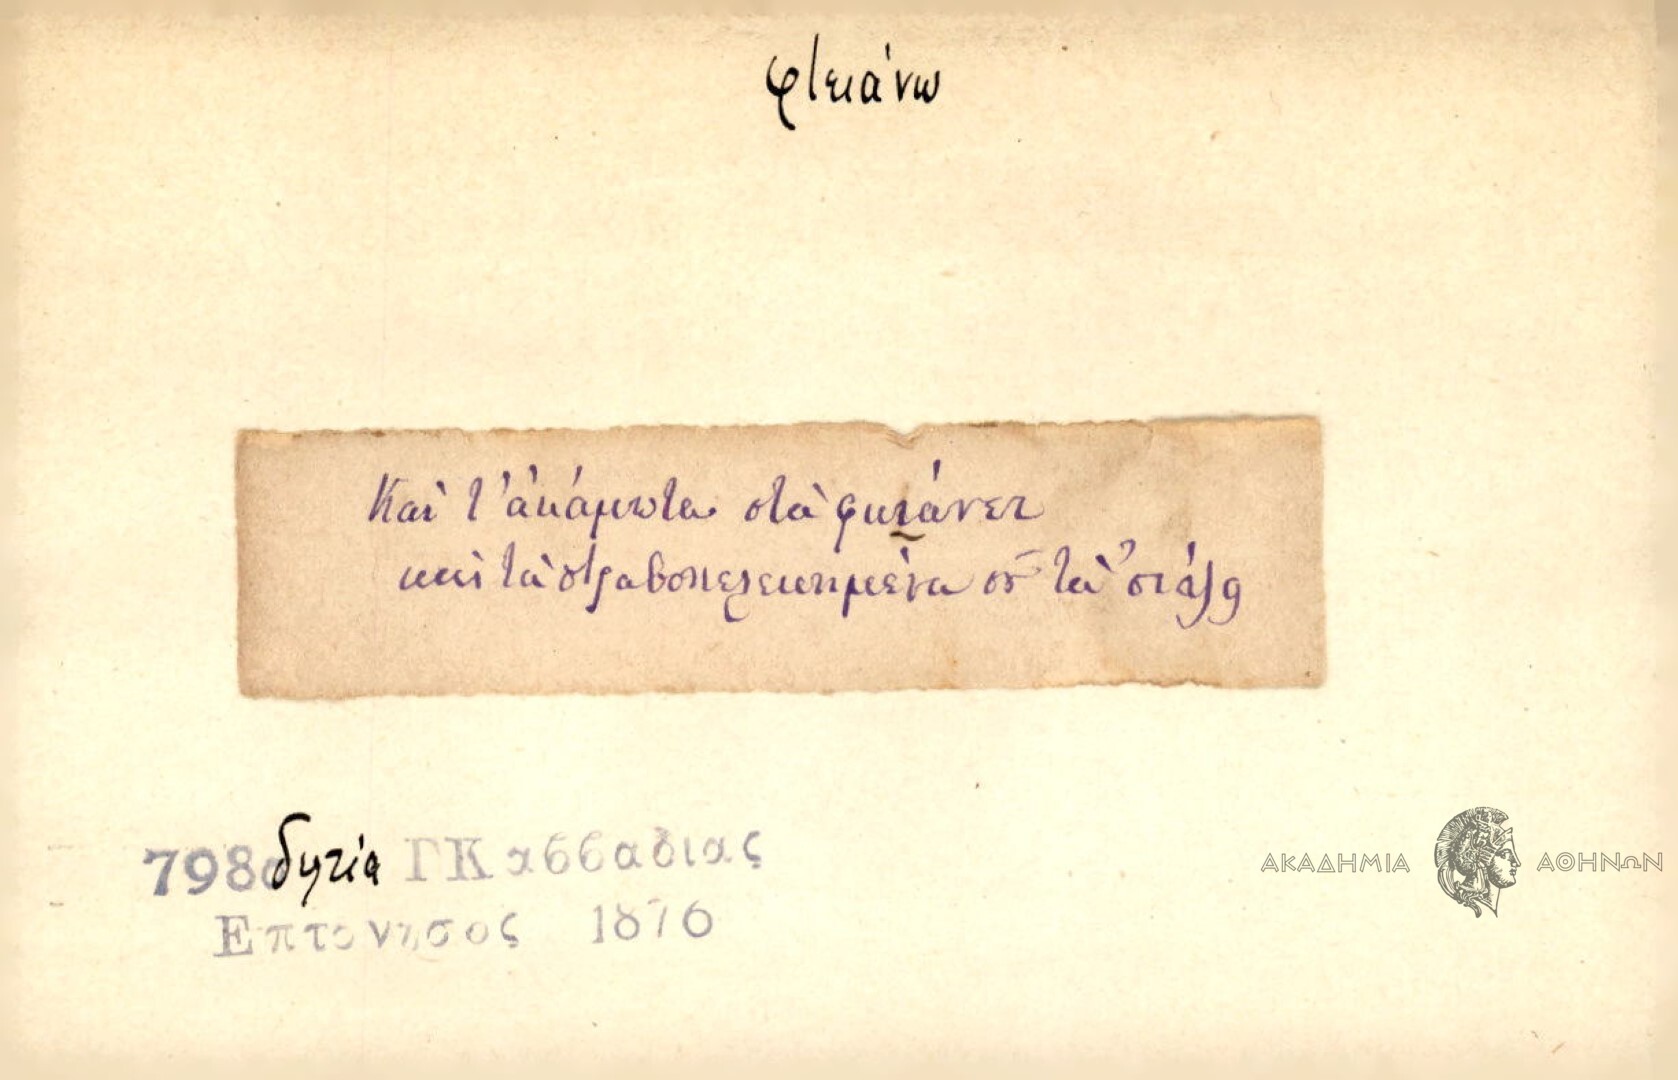 φτειάνω
Καὶ τ' ἀκάμωτα στὰ φκιάνει
καὶ τὰ στραβοπελεκημένα σοῦ τὰ σιάζη
798α δητία ΓΚαββαδιας
Επτονησος 1876
ΑΚΑΔΗΜΙΑ ΑΘΗΝΩΝ